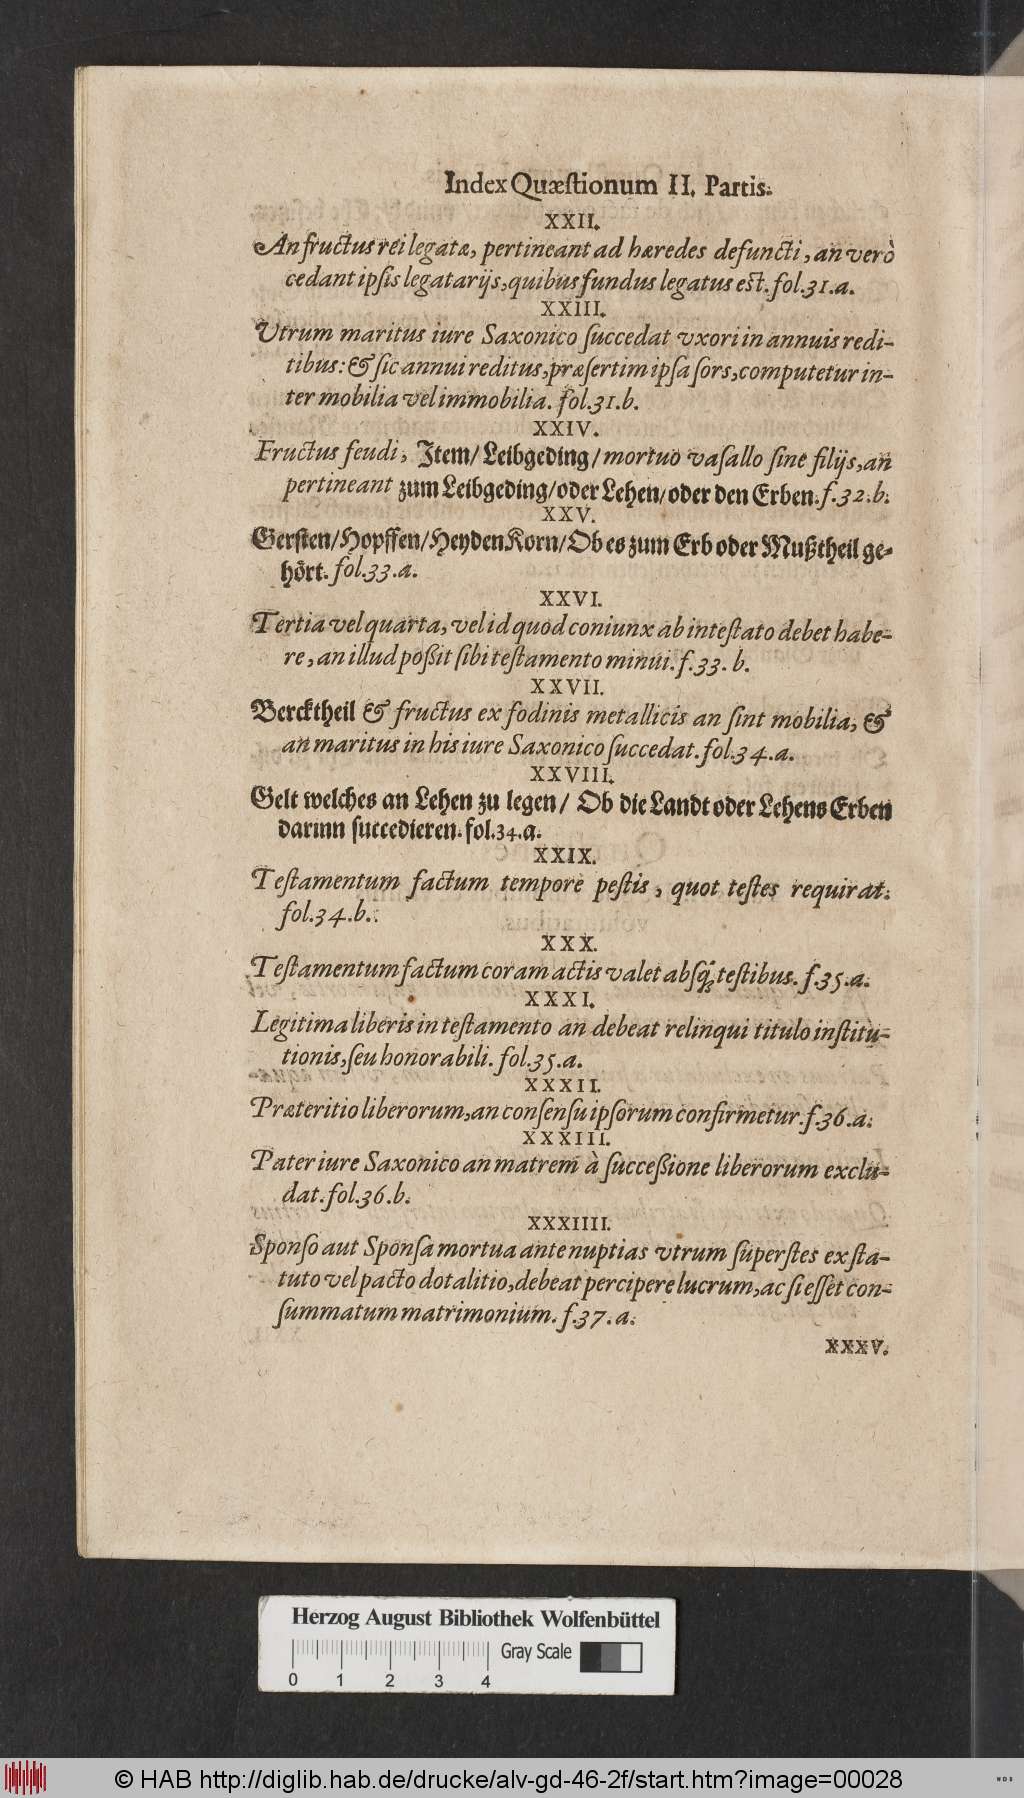 Index Quæſtionum II. Partis.
XXII.
An fructus rei legatæ, pertineant ad hæredes defuncti, an verò
cedant ipſis legatarijs, quibus fundus legatus est. fol.31.a.
XXIII.
Vtrum maritus iure Saxonico ſuccedat vxori in annuis redi-
tibus: & ſic annui reditus, præſertim ipſa ſors, computetur in-
ter mobilia vel immobilia. fol.31.b.
XXIV.
Fructus feudi, Item/ Leibgeding/ mortuo vaſallo ſine filijs, an
pertineant zum Leibgeding/ oder Lehen/ oder den Erben. f.32.b.
XXV.
Gerſten/ Hopffen/ Heyden Korn/ Ob es zum Erb oder Mußtheil ge-
hört. fol.33.a.
XXVI.
Tertia vel quarta, vel id quod coniunx ab inteſtato debet habe-
re, an illud poßit ſibi teſtamento minui. f.33.b.
XXVII.
Bercktheil & fructus ex fodinis metallicis an ſint mobilia, &
an maritus in his iure Saxonico ſuccedat. fol.34.a.
XXVIII.
Gelt welches an Lehen zu legen/ Ob die Landt oder Lehens Erben
darinn ſuccedieren. fol.34.a.
XXIX.
Teſtamentum factum tempore peſtis, quot teſtes requirat.
fol.34.b.
XXX.
Teſtamentum factum coram actis valet abſq́; teſtibus. f.35.a.
XXXI.
Legitima liberis in teſtamento an debeat relinqui titulo inſtitu-
tionis, ſeu honorabili. fol.35.a.
XXXII.
Præteritio liberorum, an conſenſu ipſorum confirmetur. f.36.a.
XXXIII.
Pater iure Saxonico an matrem à ſucceßione liberorum exclu-
dat. fol.36.b.
XXXIIII.
Sponſo aut Sponſa mortua ante nuptias vtrum ſuperſtes ex ſta-
tuto vel pacto dotalitio, debeat percipere lucrum, ac ſi eſſet con-
ſummatum matrimonium. f.37.a.
XXXV.
Herzog August Bibliothek Wolfenbüttel
Gray Scale
0 1 2 3 4
© HAB http://diglib.hab.de/drucke/alv-gd-46-2f/start.htm?image=00028